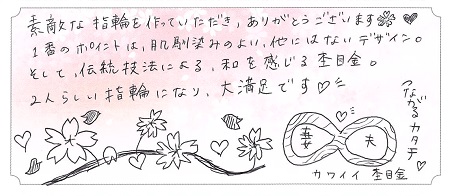 素敵な指輪を作っていただき、ありがとうございます
1番のポイントは、肌馴染みのよい、他にはないデザイン。
そして、伝統技法による、和を感じる杢目金。
2人らしい指輪になり、大満足です♡
つながるカタチ
妻 夫
カワイイ 杢目金